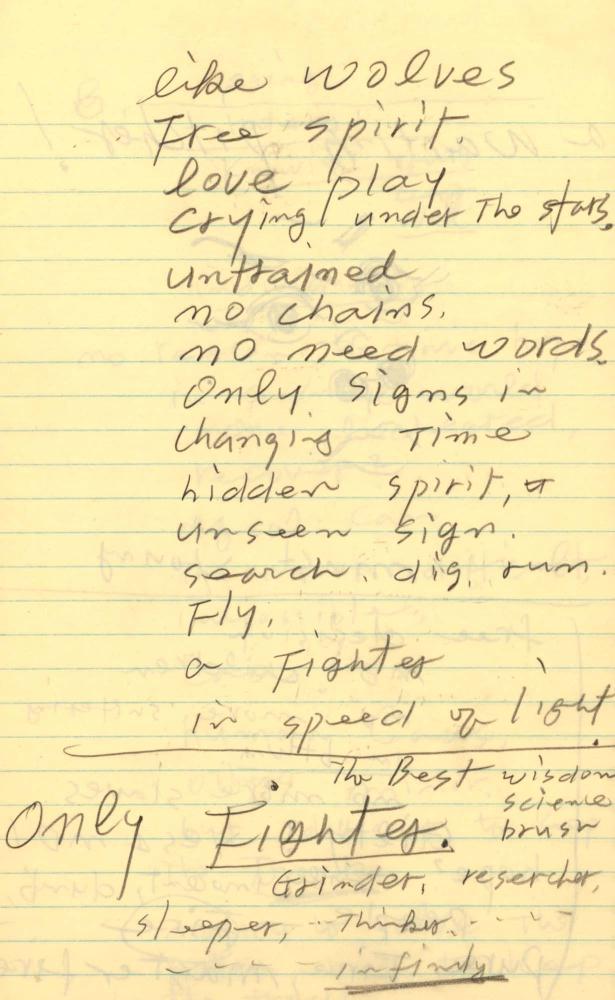 like wolves
Free spirit.
love play
crying under The stars.
untrained
no chains.
no need words.
Only signs in
changing Time
hidden spirit,
unseen sign.
search. dig. run.
Fly.
a Fighter
in speed of light.
The Best wisdom
science
Only Fighter. brush
Grinder, resercher,
sleeper, Thinker.
infinity